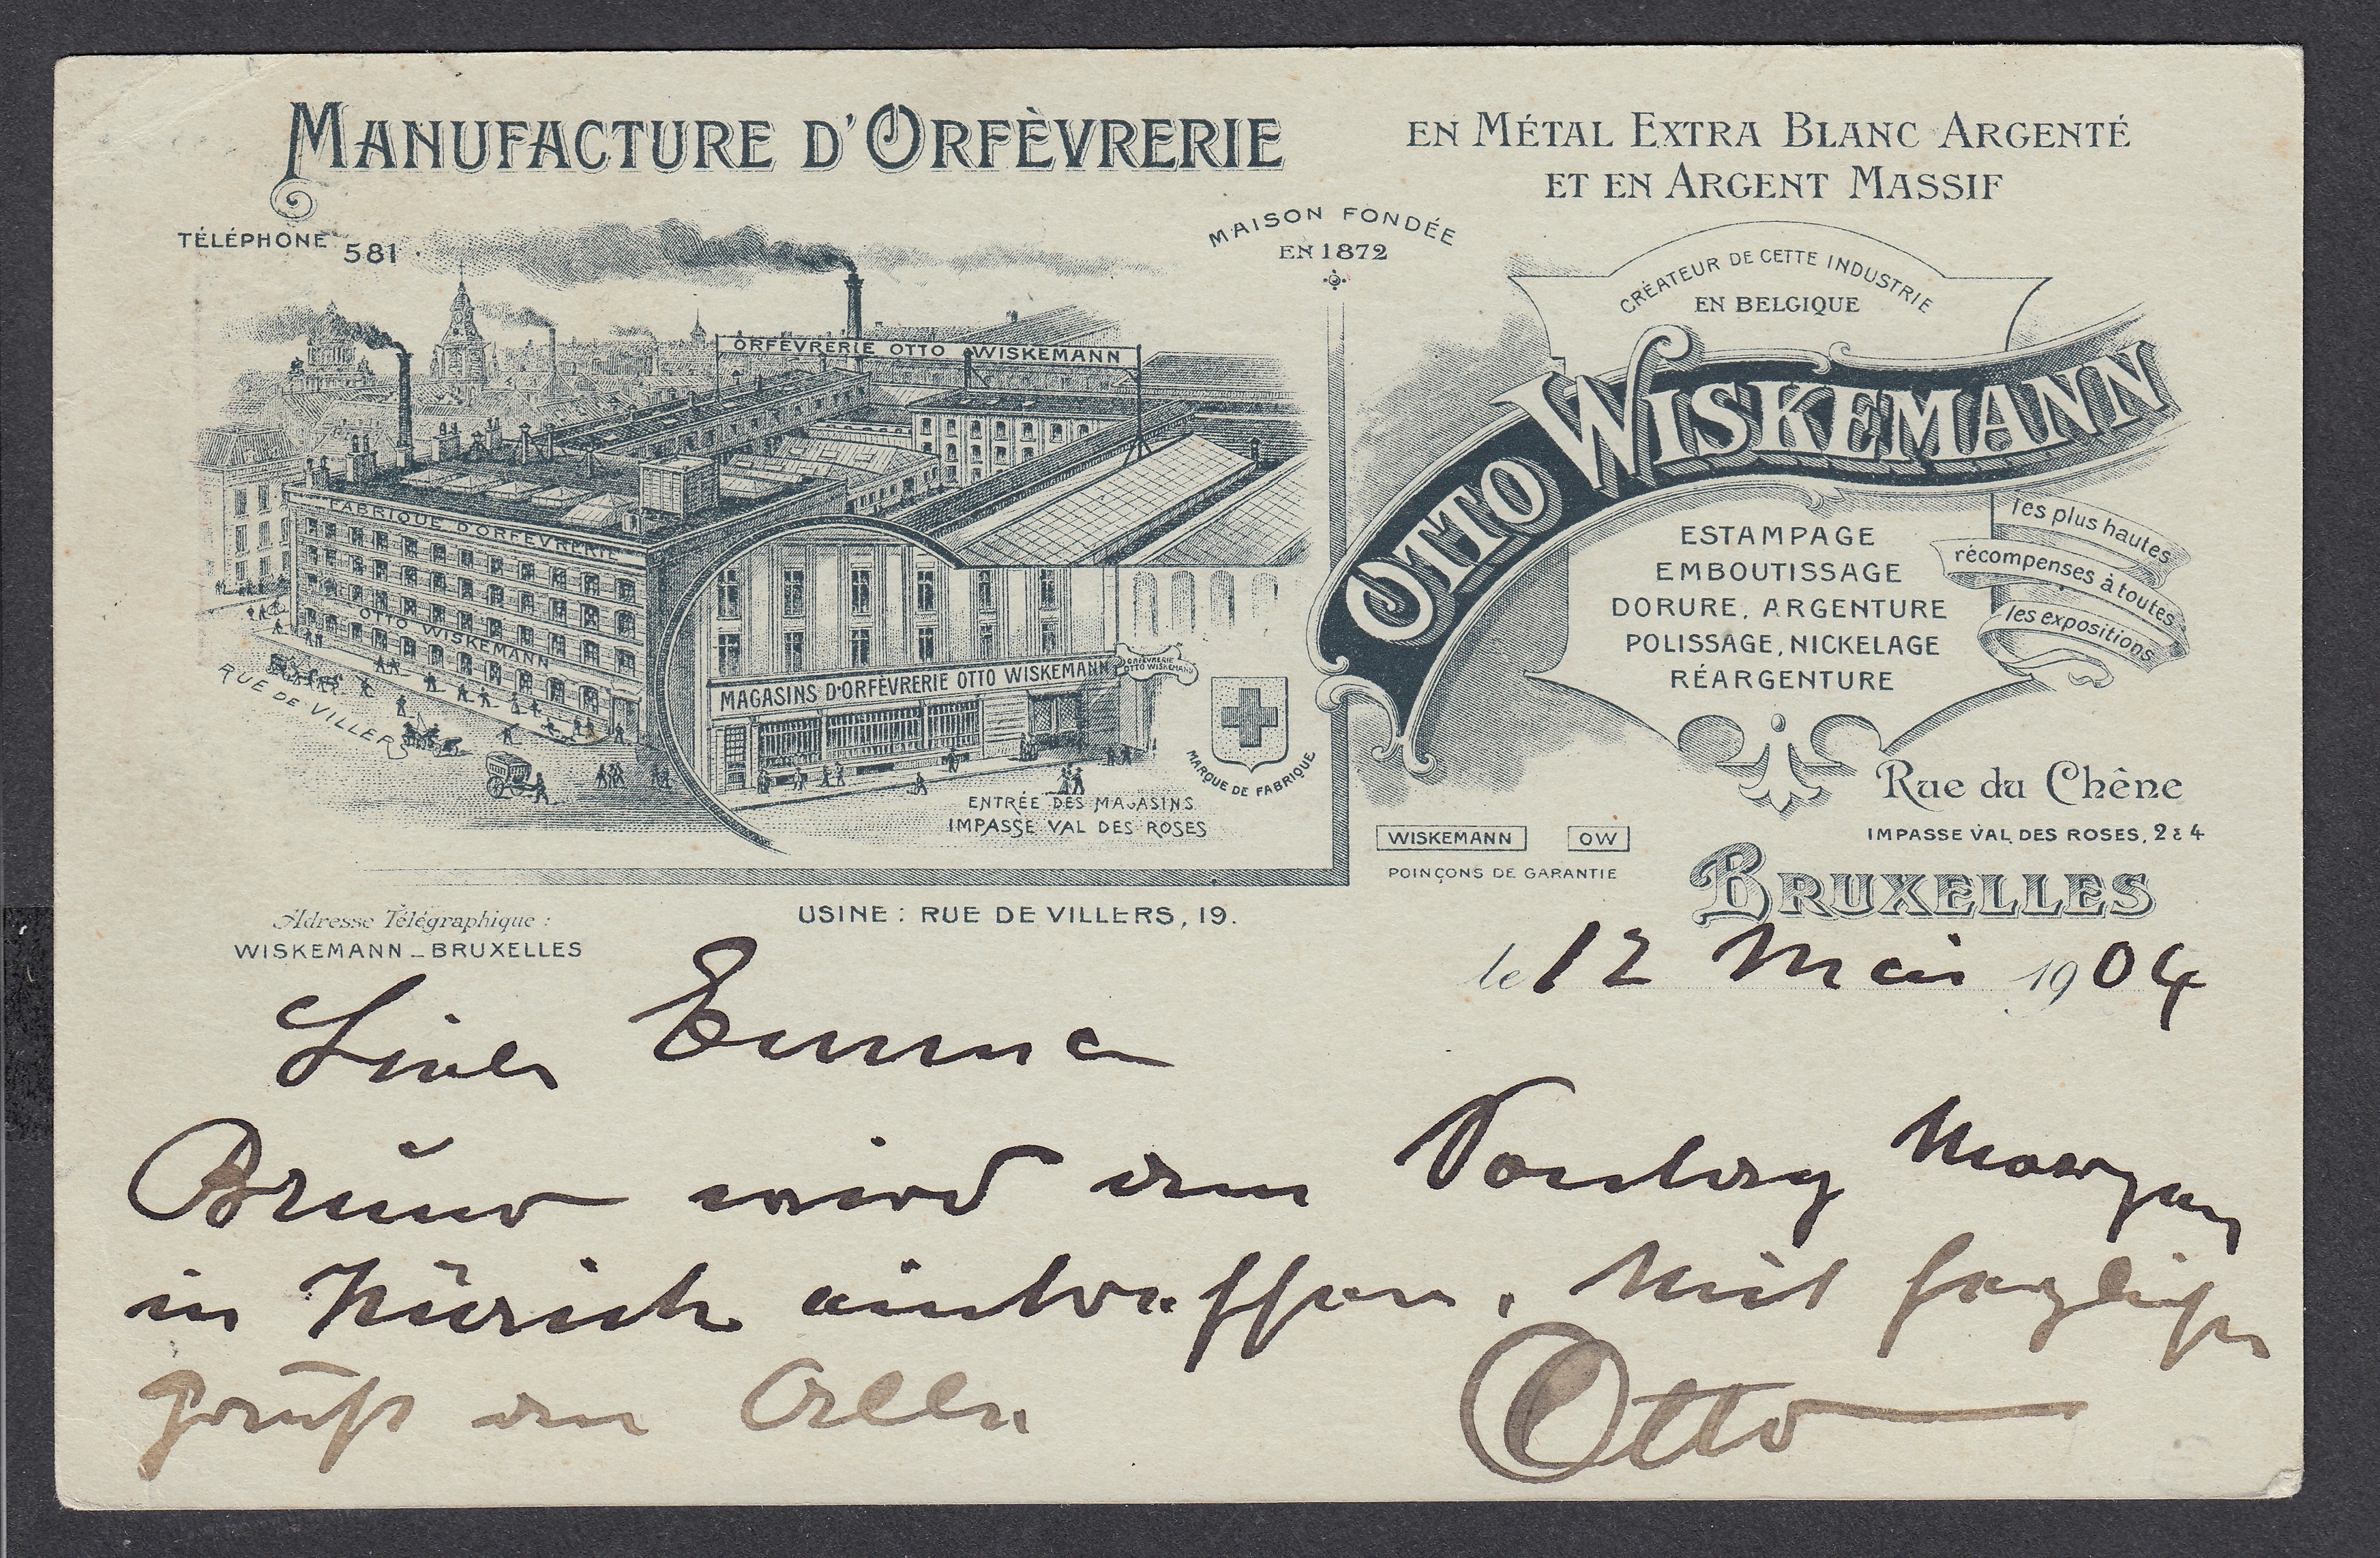 MANUFACTURE D'ORFÈVRERIE
EN MÉTAL EXTRA BLANC ARGENTÉ
ET EN ARGENT MASSIF
TÉLÉPHONE 581
MAISON FONDÉE
EN 1872
CRÉATEUR DE CETTE INDUSTRIE
EN BELGIQUE
ORFÈVRERIE OTTO WISKEMANN
OTTO WISKEMANN
FABRIQUE D'ORFÈVRERIE
OTTO WISKEMANN
RUE DE VILLERS
MAGASINS D'ORFÈVRERIE OTTO WISKEMANN
ORFÈVRERIE
OTTO WISKEMANN
MARQUE DE FABRIQUE
ENTRÉE DES MAGASINS
IMPASSE VAL DES ROSES
ESTAMPAGE
EMBOUTISSAGE
DORURE, ARGENTURE
POLISSAGE, NICKELAGE
RÉARGENTURE
les plus hautes
récompenses à toutes
les expositions
Rue du Chêne
IMPASSE VAL DES ROSES, 2 & 4
WISKEMANN OW
POINÇONS DE GARANTIE
BRUXELLES
Adresse Télégraphique :
WISKEMANN _ BRUXELLES
USINE : RUE DE VILLERS, 19.
le 12 Mai 1904
Liebe Emma
Bruno wird am Sonntag Morgen
in Zürich eintreffen. Mit herzlichen
Gruß an Alle
Otto